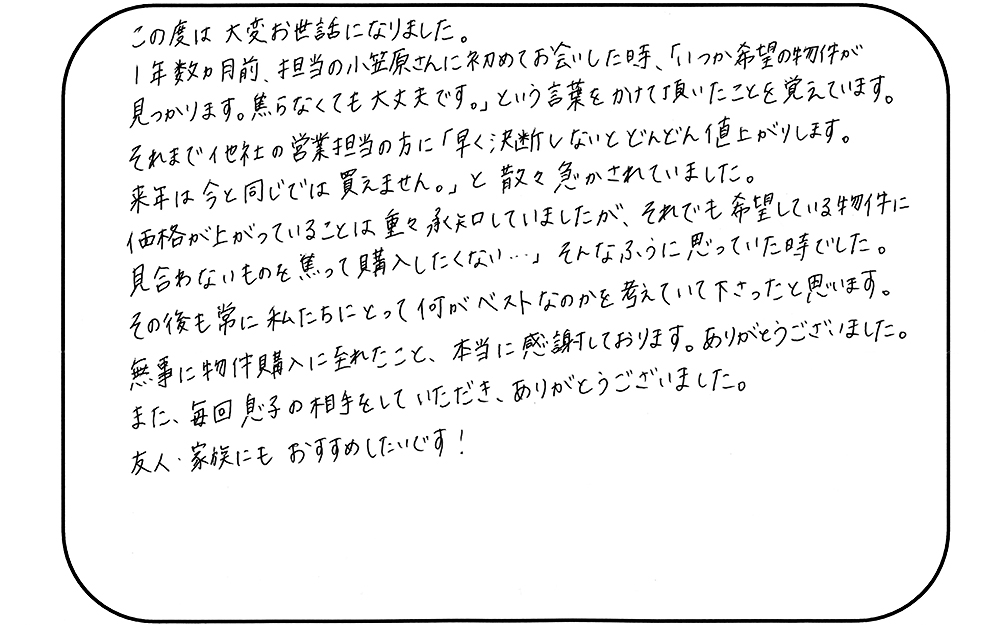 この度は大変お世話になりました。
1年数ヵ月前、担当の小笠原さんに初めてお会いした時、「いつか希望の物件が
見つかります。焦らなくても大丈夫です。」という言葉をかけて頂いたことを覚えています。
それまで他社の営業担当の方に「早く決断しないとどんどん値上がりします。
来年は今と同じでは買えません。」と散々急かされていました。
価格が上がっていることは重々承知していましたが、それでも希望している物件に
見合わないものを焦って購入したくない…」そんなふうに思っていた時でした。
その後も常に私たちにとって何がベストなのかを考えていて下さったと思います。
無事に物件購入に至れたこと、本当に感謝しております。ありがとうございました。
また、毎回息子の相手をしていただき、ありがとうございました。
友人・家族にもおすすめしたいです!